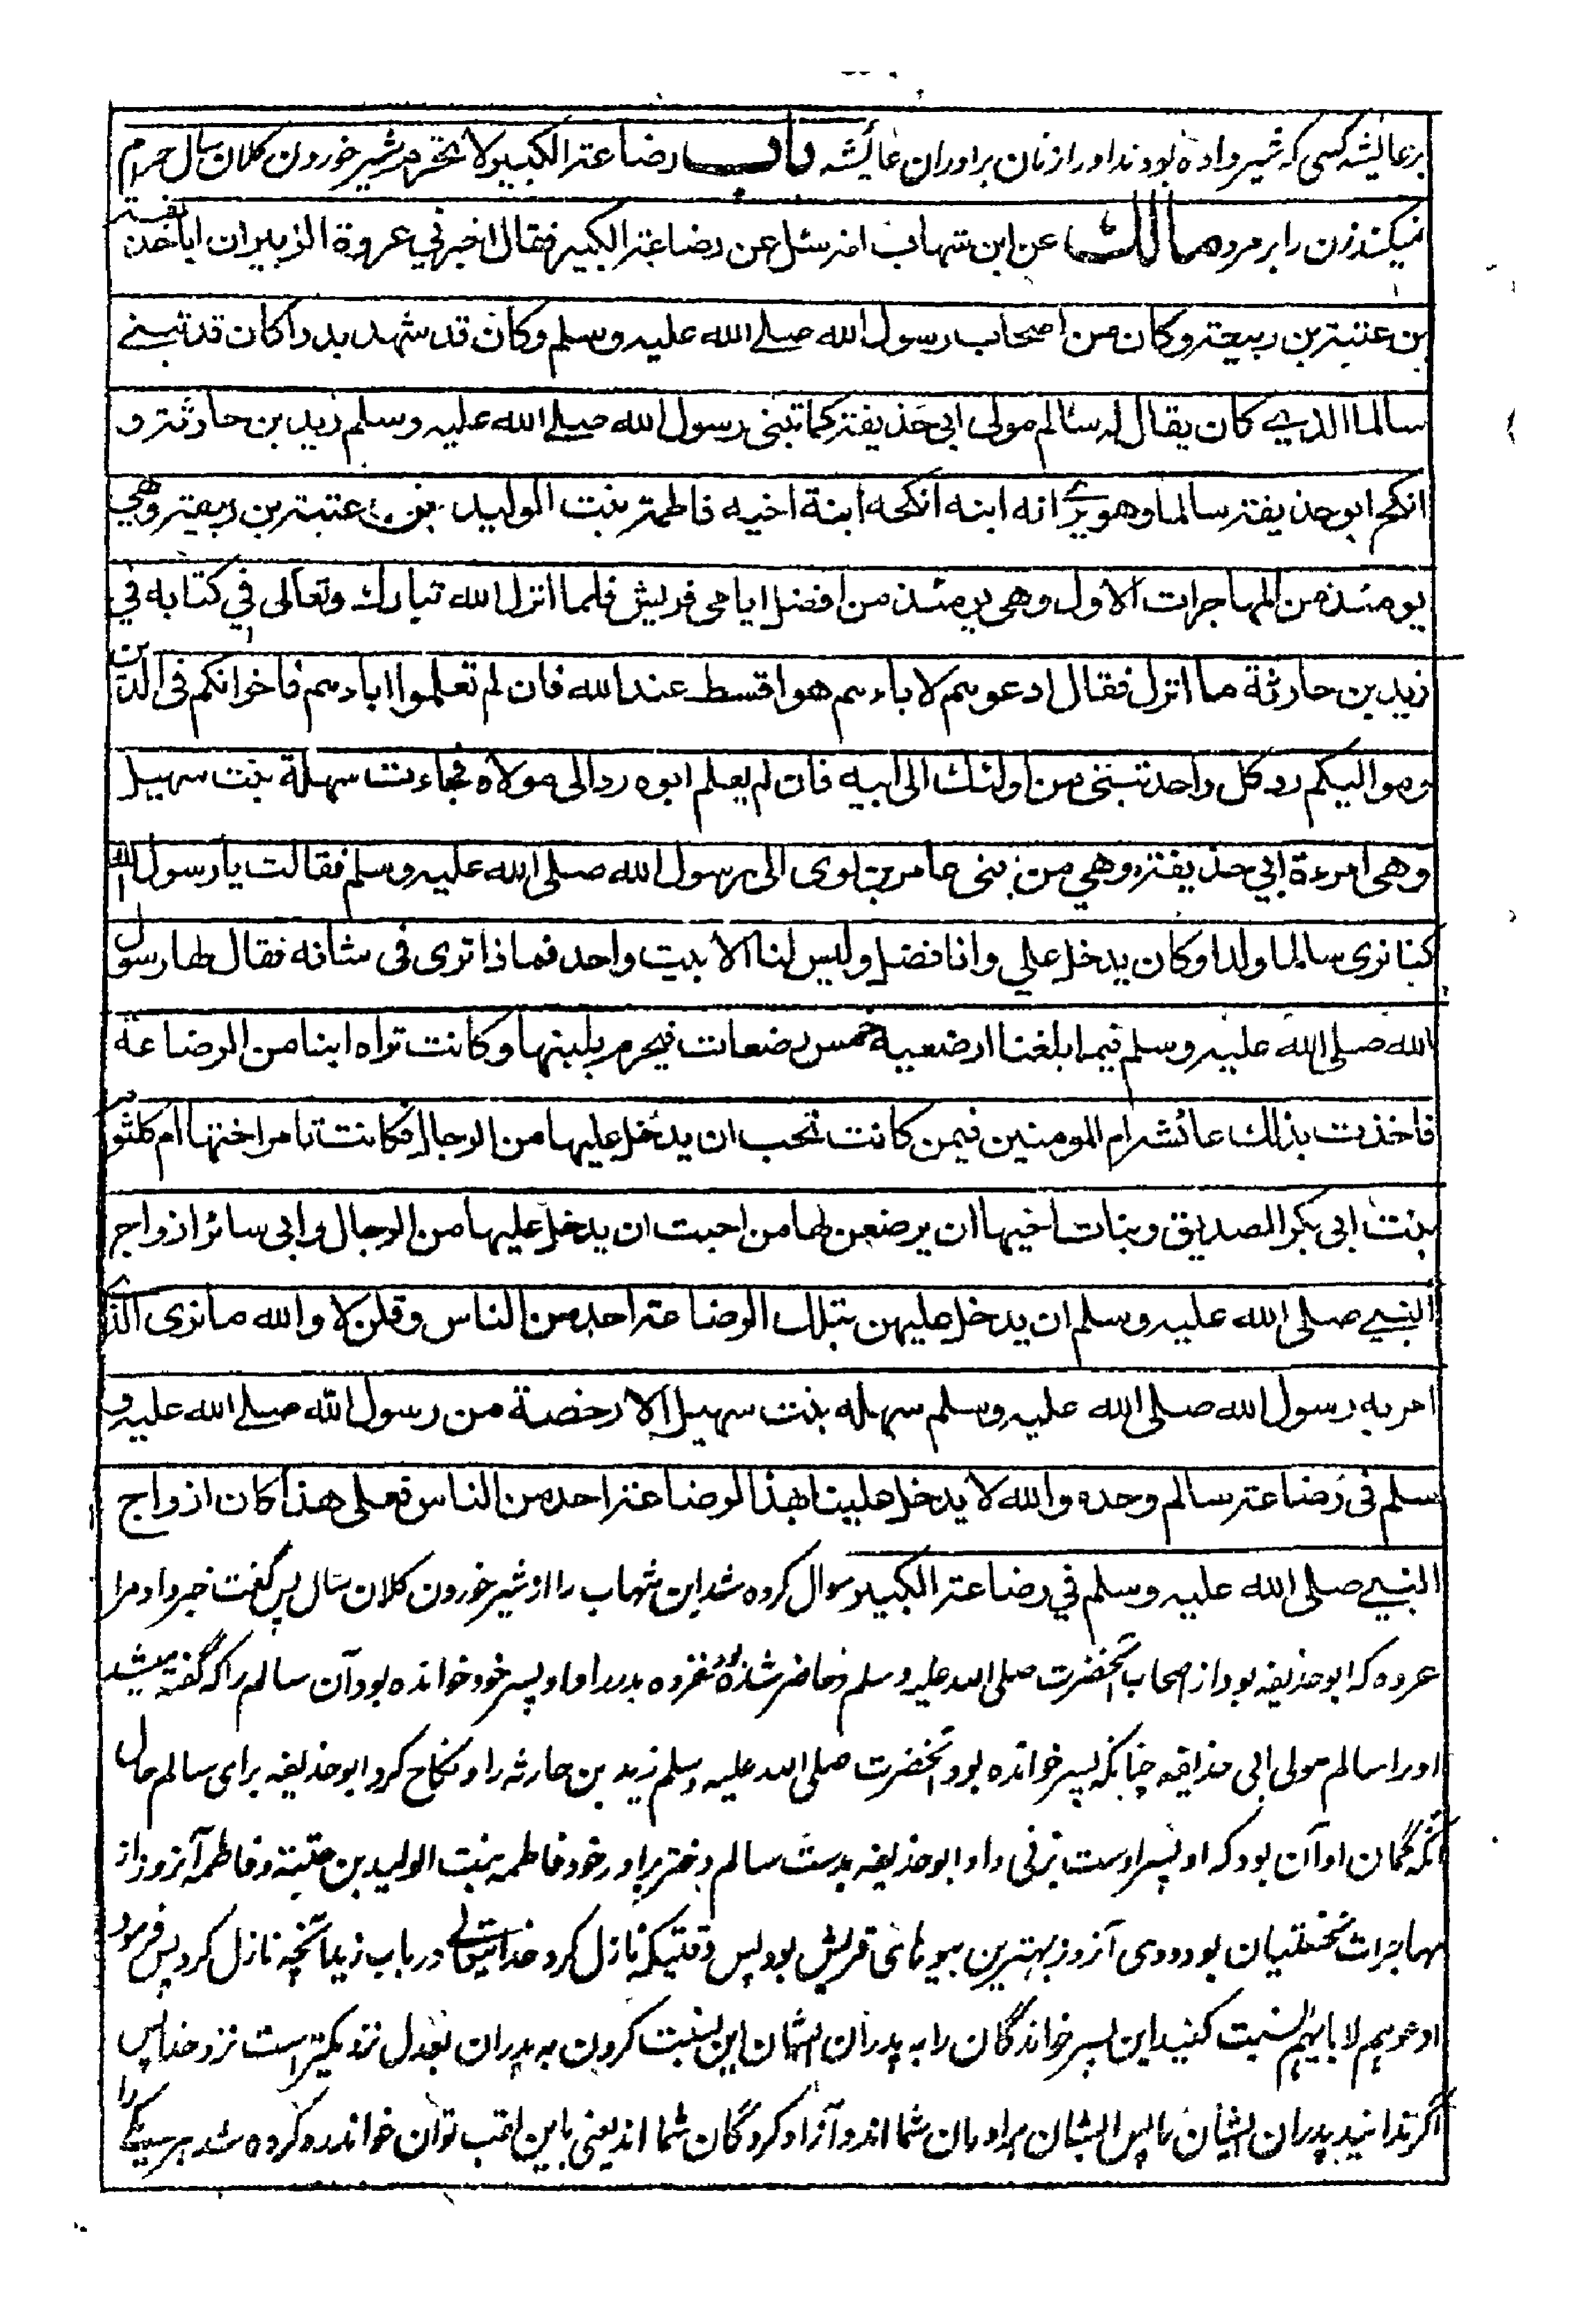 بر عایشه کسی که شیر داده بودند او را زنان برادران عائشه باب رضاعة الکبیر لا تحرم شیر خوردن کلان سال حرام
نمیکند زن را بر مرد مالك عن ابن شهاب انه سئل عن رضاعة الکبیر فقال اخبرني عروة الزبیر ان ابا حذیفة
بن عتبة بن ربیعة وکان من اصحاب رسول الله صلے الله علیه وسلم وکان قد شهد بدرا کان قد تبنے
سالما الذے کان یقال له سالم مولی ابی حذیفة کما تبنی رسول الله صلے الله علیه وسلم زید بن حارثة و
انکح ابو حذیفة سالما وهو یرے انه ابنه انکحه ابنة اخیه فاطمة بنت الولید بن عتبة بن ربیعة وهي
یومئذ من المهاجرات الاول وهی یومئذ من افضل ایامی قریش فلما انزل الله تبارك وتعالی في کتابه في
زید بن حارثة ما انزل فقال ادعوهم لاباءهم هو اقسط عند الله فان لم تعلموا اباءهم فاخوانکم فی الدین
وموالیکم رد کل واحد تبنی من اولئك الی ابیه فان لم یعلم ابوه رد الی مولاه فجاءت سهلة بنت سهیل
وهی امرءة ابي حذیفة وهي من بنی عامر بن لوی الی رسول الله صلی الله علیه وسلم فقالت یا رسول الله
کنا نری سالما ولدا وکان یدخل علي وانا فضل ولیس لنا الا بیت واحد فماذا تری فی شانه فقال لها رسول
الله صلی الله علیه وسلم فیما بلغنا ارضعیه خمس رضعات فیحرم بلبنها وکانت تراه ابنا من الرضاعة
فاخذت بذلك عائشة ام المومنین فیمن کانت تحب ان یدخل علیها من الرجال فکانت تامر اختها ام کلثوم
بنت ابی بکر الصدیق وبنات اخیها ان یرضعن لها من احبت ان یدخل علیها من الرجال وابی سائر ازواج
النبے صلی الله علیه وسلم ان یدخل علیهن بتلك الرضاعة احد من الناس وقلن لا والله ما نری الذے
امر به رسول الله صلی الله علیه وسلم سهله بنت سهیل الا رخصة من رسول الله صلے الله علیه و
سلم فی رضاعة سالم وحده والله لا یدخل علینا بهذا الرضاعة احد من الناس فعلی هذا کان ازواج
النبے صلی الله علیه وسلم في رضاعة الکبیر سوال کرده شد ابن شهاب را از شیر خوردن کلان سال پس گفت خبر داد مرا
عروه که ابو حذیفه بود از اصحاب آنحضرت صلی الله علیه وسلم و حاضر شده بود غزوه بدر را و او پسر خود خوانده بود آن سالم را که گفته میشد
او را سالم مولی ابی حذیفه چنانکه پسر خوانده بود آنحضرت صلی الله علیه وسلم زید بن حارثه را و نکاح کرد ابو حذیفه برای سالم حال
آنکه گمان او آن بود که او پسر اوست بزنی داد ابو حذیفه بدست سالم دختر برادر خود فاطمه بنت الولید بن عتبة و فاطمه آنروز از
مهاجرات نخستینان بود و وی آنروز بهترین بیوهای قریش بود پس وقتیکه نازل کرد خدایتعالی در باب زید آنچه نازل کرد پس فرمود
ادعوهم لابائهم نسبت کنید این پسر خواندگان را به پدران ایشان این نسبت کردن به پدران بعدل نزدیکتر است نزد خدا پس
اگر ندانید پدران ایشان را پس ایشان برادران شما اند و آزاد کردگان شما اند یعنی باین لقب توان خواند رد کرده شد هر یکے را